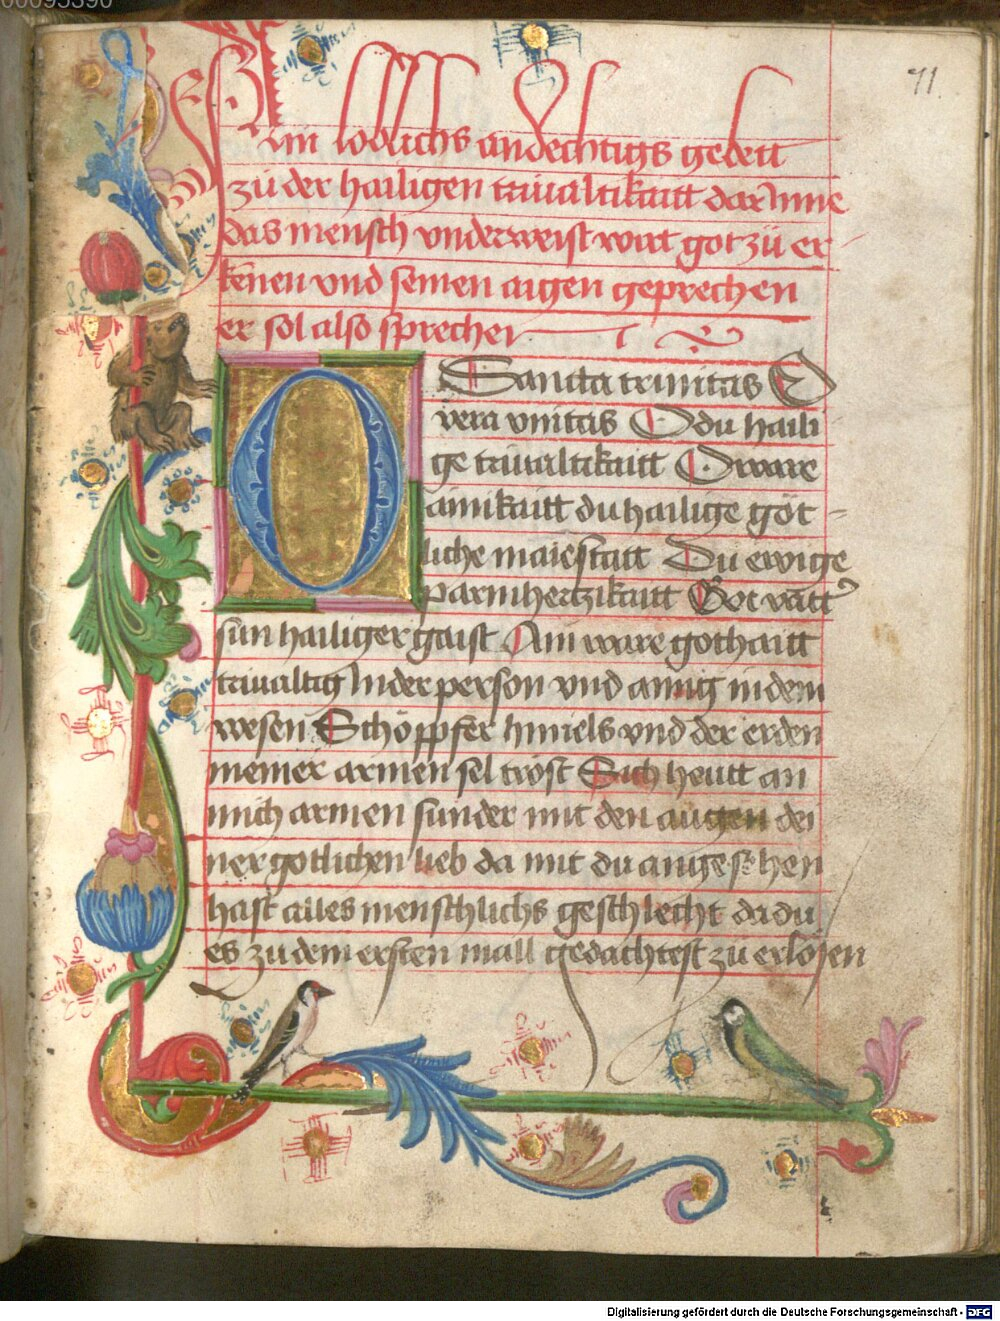 00095390
71.
Ain loblichs andechtigs gebett
zů der hailigen triualtikaitt dar Inne
das mensch vnderweist wirt got zů er
kēnen vnd seinen aigen geprechen
er sol also sprechen
O Sancta trinitas O
vera vnitas O du haili
ge triualtikaitt O ware
ainikaitt du hailige göt
liche maiestatt Du ewige
parmhertzikaitt Got vatt
sun hailiger gaist Ain ware gothaitt
triualtig In der person vnd ainig in dem
wesen Schöpffer himels vnd der erden
meiner armen sel trost Sich heutt an
mich armen sunder mit den augen dei
ner gotlichen lieb da mit du angesehen
hast alles menschlichs geschlecht da du
es zu dem ersten mall gedachtest zu erlösen
Digitalisierung gefördert durch die Deutsche Forschungsgemeinschaft - DFG